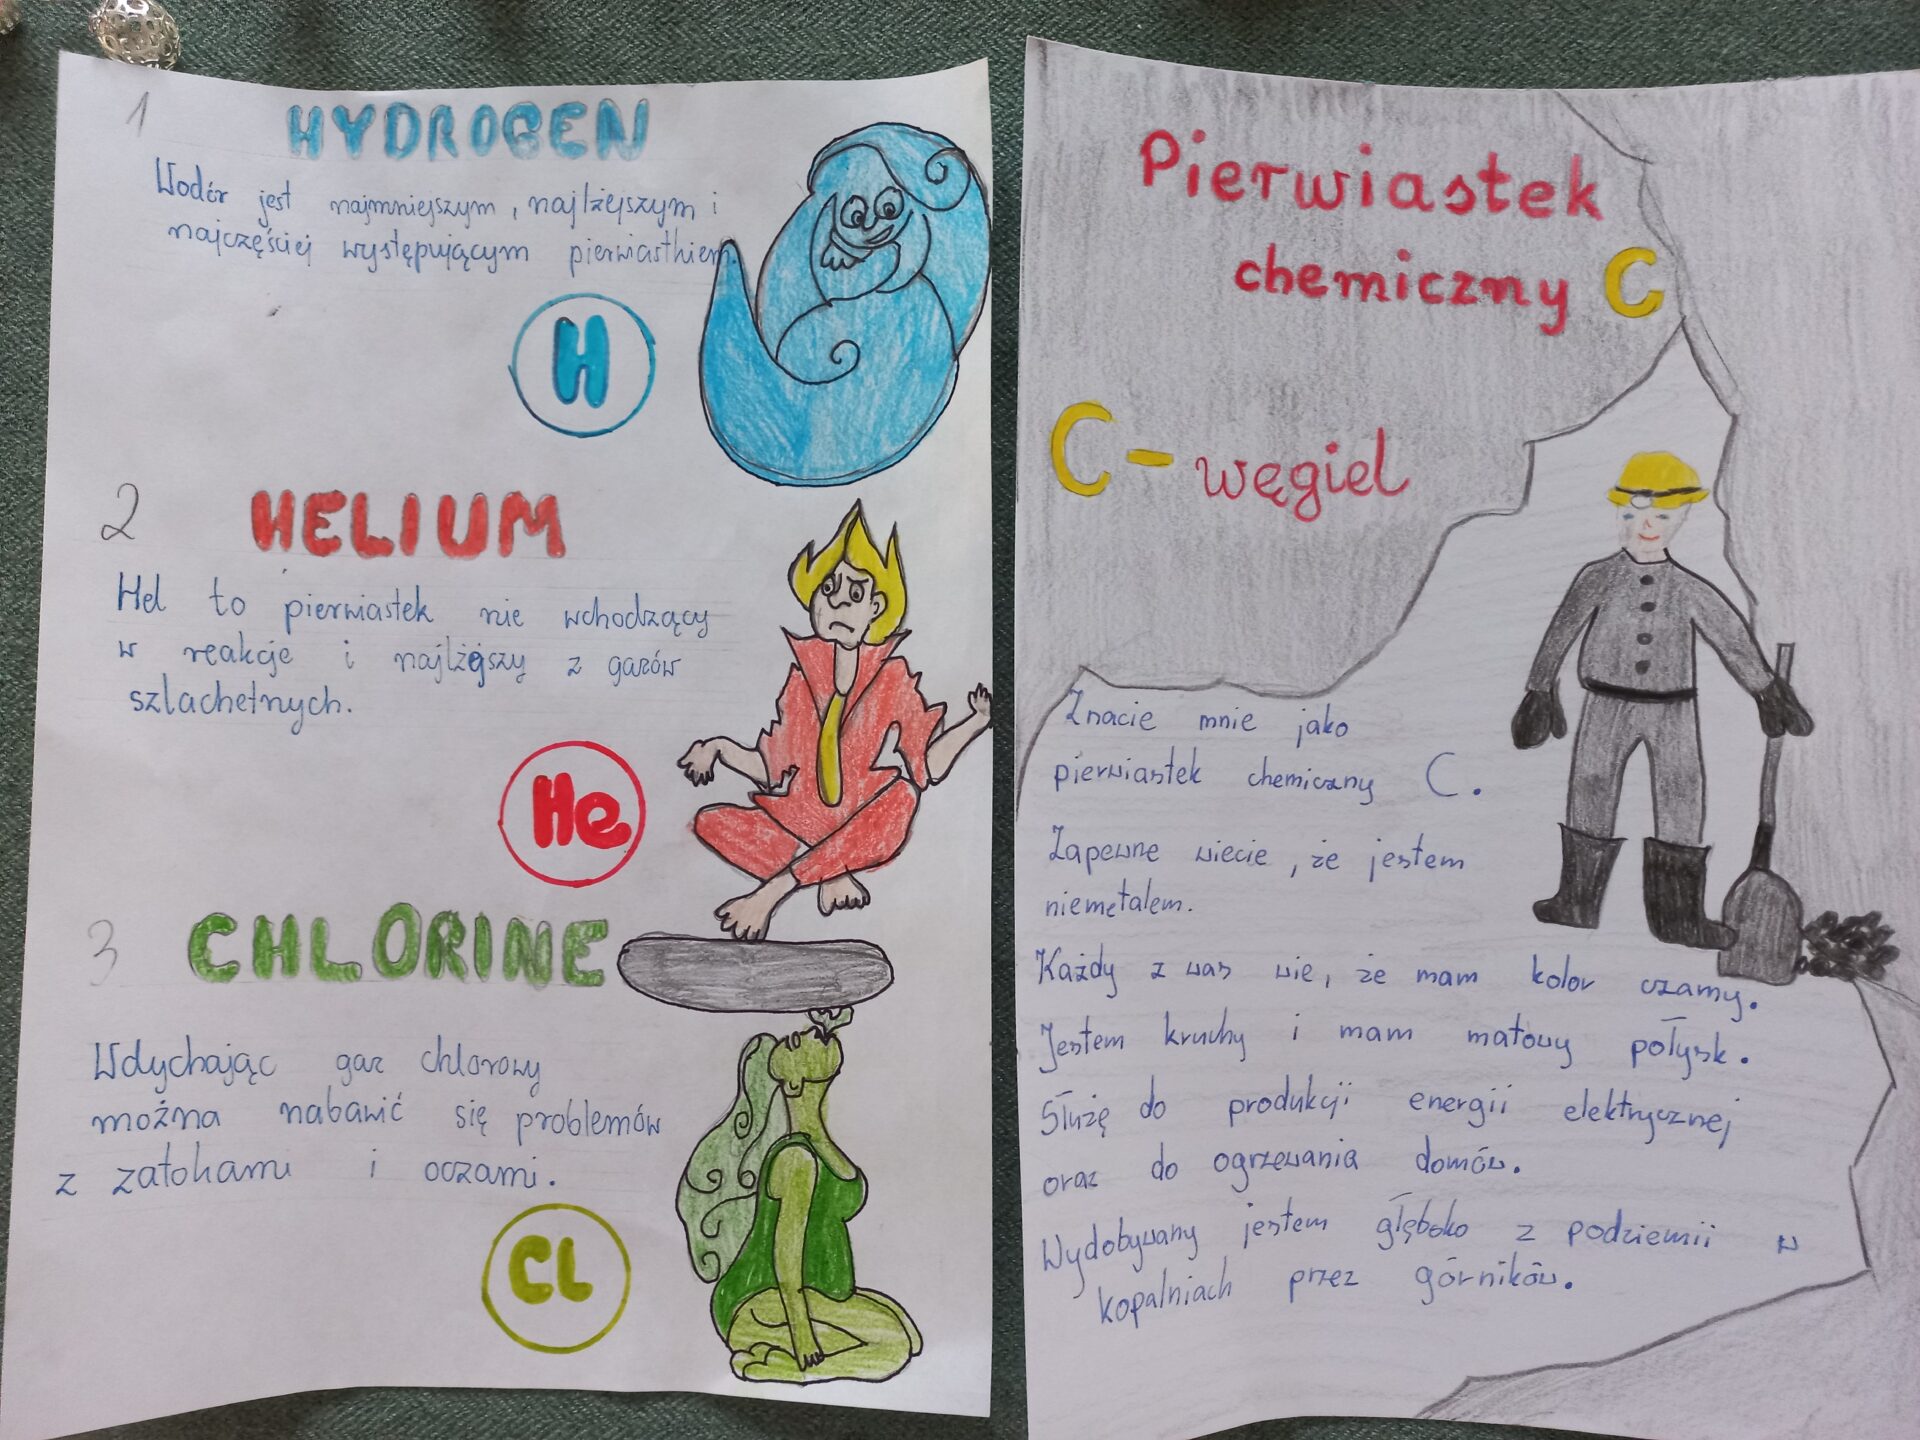 1 HYDROGEN
Wodór jest najmniejszym, najlżejszym i
najczęściej występującym pierwiastkiem.
H
2 HELIUM
Hel to pierwiastek nie wchodzący
w reakcje i najlżejszy z gazów
szlachetnych.
He
3 CHLORINE
Wdychając gaz chlorowy
można nabawić się problemów
z zatokami i oczami.
CL
Pierwiastek
chemiczny C
C - węgiel
Znacie mnie jako
pierwiastek chemiczny C.
Zapewne wiecie, że jestem
niemetalem.
Każdy z was wie, że mam kolor czarny.
Jestem kruchy i mam matowy połysk.
Służę do produkcji energii elektrycznej
oraz do ogrzewania domów.
Wydobywany jestem głęboko z podziemii w
kopalniach przez górników.